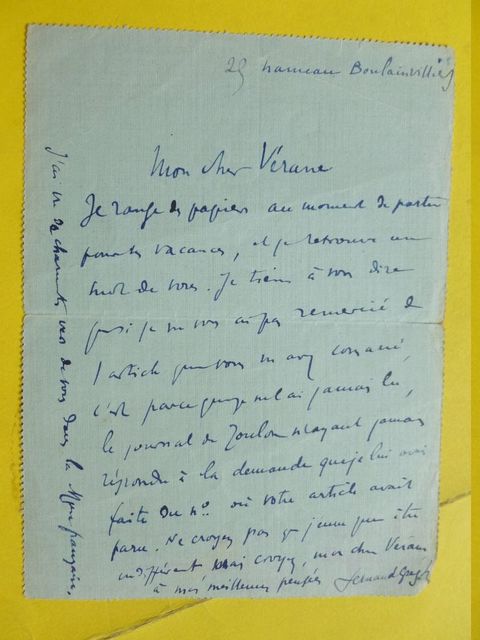 29 hameau Boulainvilliers
Mon cher Vérane
Je range des papiers au moment de partir
pour les vacances, et je retrouve un
mot de vous. Je tiens à vous dire
que si je ne vous ai pas remercié de
l'article que vous m'avez consacré,
c'est parce que je ne l'ai jamais lu,
le journal de Toulon n'ayant jamais
répondu à la demande que je lui avais
faite du no. où votre article avait
paru. Ne croyez pas que j'aime être
indifférent mais croyez, mon cher Vérane
à mes meilleures pensées Fernand Gregh
J'ai vu de charmants vers de vous dans la Muse française.